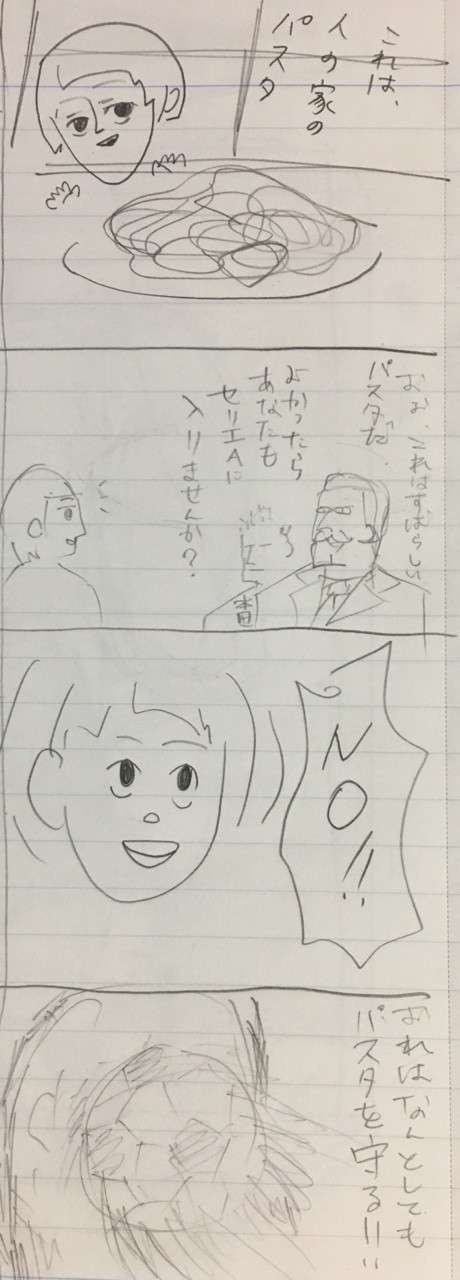 これは、
人の家の
パスタ
おお、これはすばらしい
パスタだ。
よかったら
あなたも
セリエAに
入りませんか？
NO!!
おれはなんとしても
パスタを守る!!